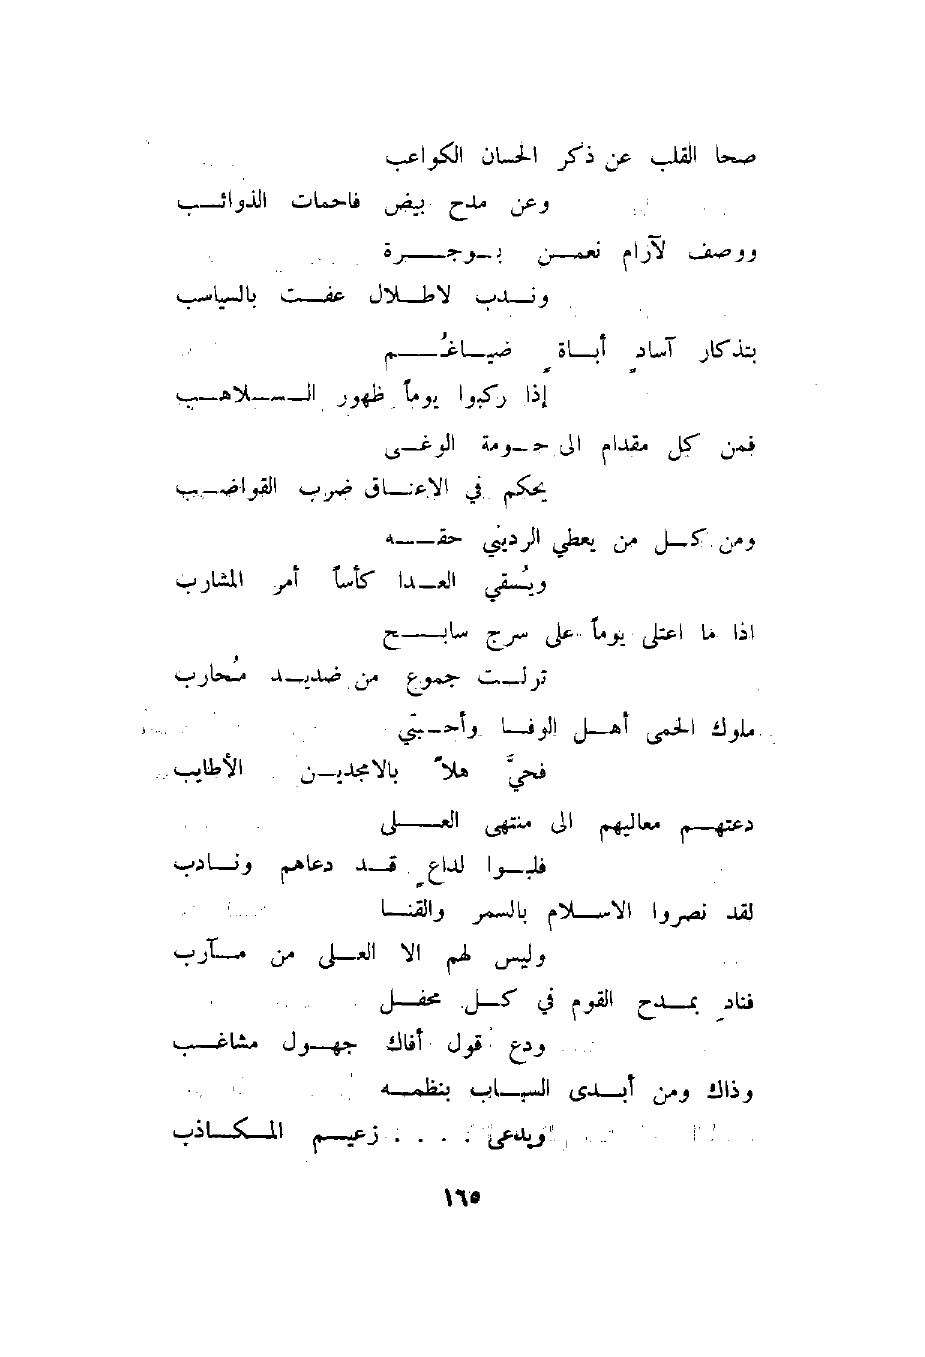 صحا القلب عن ذكر الحسان الكواعب
وعن مدح بيض فاحمات الذوائب
ووصف لآرام نعمن بوجرة
وندب لاطلال عفت بالسباسب
بتذكار آسادٍ أباةٍ ضياغُم
إذا ركبوا يوماً ظهور السلاهب
فمن كل مقدام الى حومة الوغى
يحكم في الاعناق ضرب القواضب
ومن كل من يعطي الرديني حقه
ويُسقي العدا كأساً أمر المشارب
اذا ما اعتلى يوماً على سرج سابح
تولت جموع من ضديد مُحارب
ملوك الحمى أهل الوفا وأحبتي
فحيَّ هلاً بالامجدين الأطايب
دعتهم معاليهم الى منتهى العلى
فلبوا لداعٍ قد دعاهم ونادب
لقد نصروا الاسلام بالسمر والقنا
وليس لهم الا العلى من مآرب
فنادِ بمدح القوم في كل محفل
ودع قول أفاك جهول مشاغب
وذاك ومن أبدى السباب بنظمه
ويدعى . . . . زعيم المكاذب
١٦٥